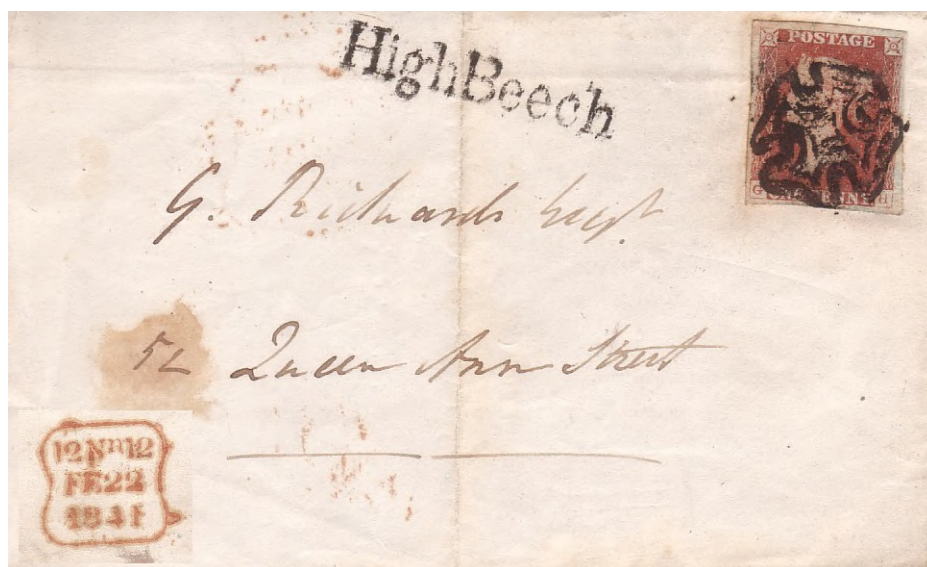 HighBeech
POSTAGE
G ONE PENNY H
G. Richards Esqr
52 Queen Ann Street
12Nn12
FE22
1841